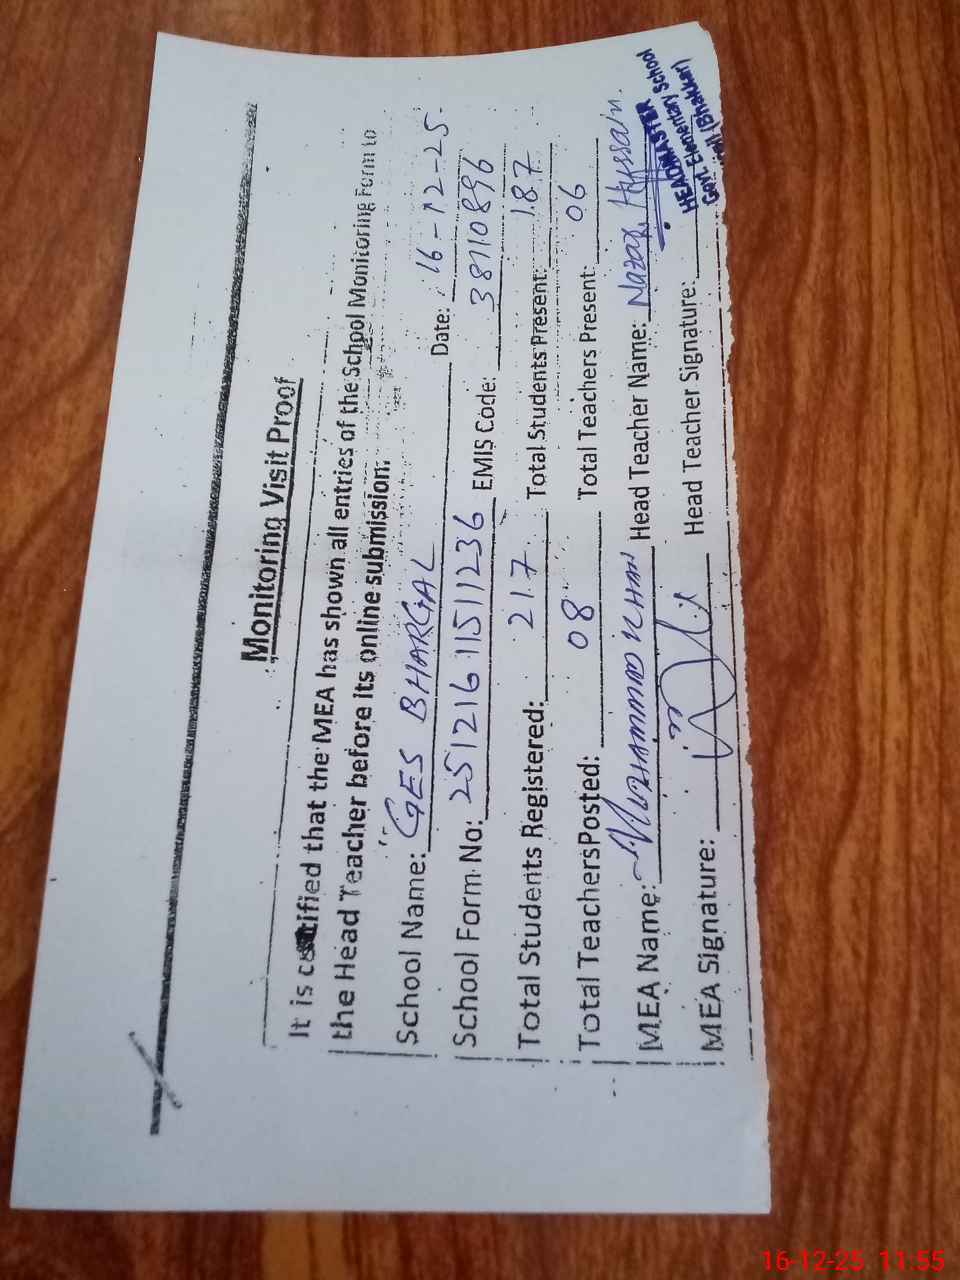 Monitoring Visit Proof
It is certified that the MEA has shown all entries of the School Monitoring Form to
the Head Teacher before its online submission.
School Name: GES BHARGAL Date: 16-12-25
School Form No: 251216115111236 EMIS Code: 38110896
Total Students Registered: 217 Total Students Present: 187
Total Teachers Posted: 08 Total Teachers Present: 06
MEA Name: Muhammad Head Teacher Name: Hussain.
MEA Signature: Head Teacher Signature:
HEADMASTER
Govt. Elementary School
(Bhakkar)
16-12-25 11:55